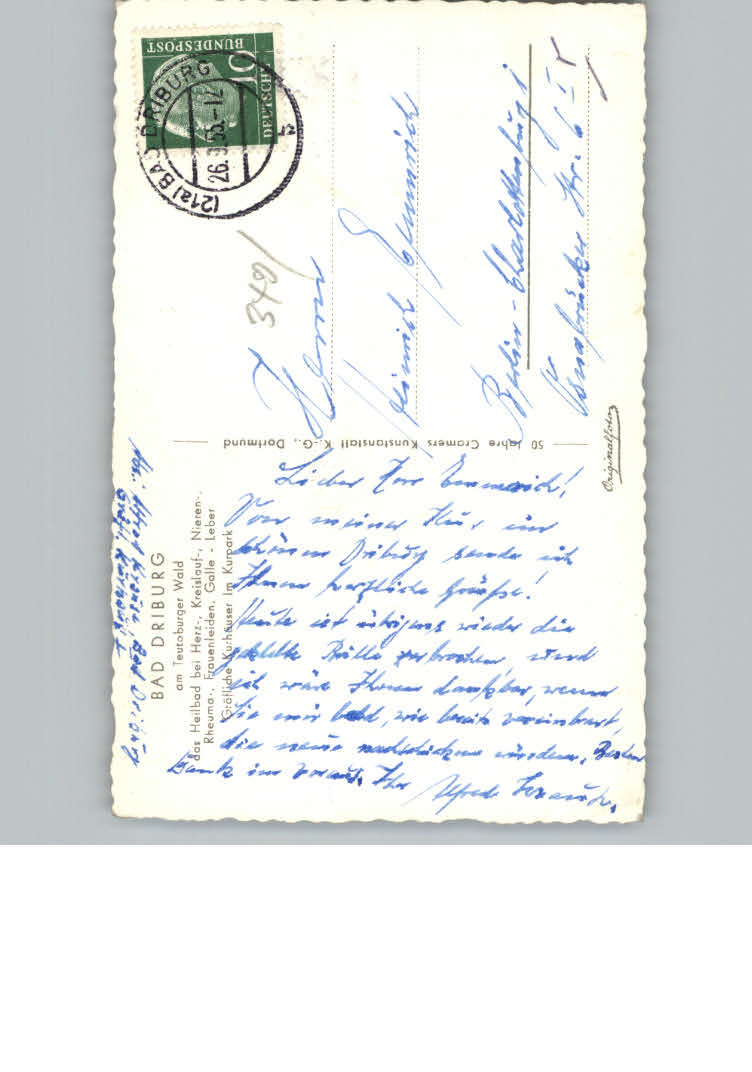 BAD DRIBURG
am Teutoburger Wald
das Heilbad bei Herz-, Kreislauf-, Nieren-,
Rheuma-, Frauenleiden, Galle - Leber
Gräfliche Kurhäuser im Kurpark
Lieber Herr Emmerich!
Von meiner Kur im
schönen Driburg sende ich
Ihnen herzliche Grüße!
Heute ist übrigens wieder die
geklebte Brille zerbrochen, und
ich wäre Ihnen dankbar, wenn
Sie mir bald, wie bereits vereinbart,
die neue nachschicken würden. Besten
Dank im Voraus. Ihr Alfred
Abs. Alfred Bad Driburg
Gräfl. Kurhaus I
50 Jahre Cramers Kunstanstalt K.-G., Dortmund
Originalfoto
DEUTSCHE
BUNDESPOST
10
(21a) BAD DRIBURG
26.9.55.-12
b
3491
Herrn
Heinrich Emmerich
Berlin-Charlottenburg 1
Osnabrücker Str. 6 I r